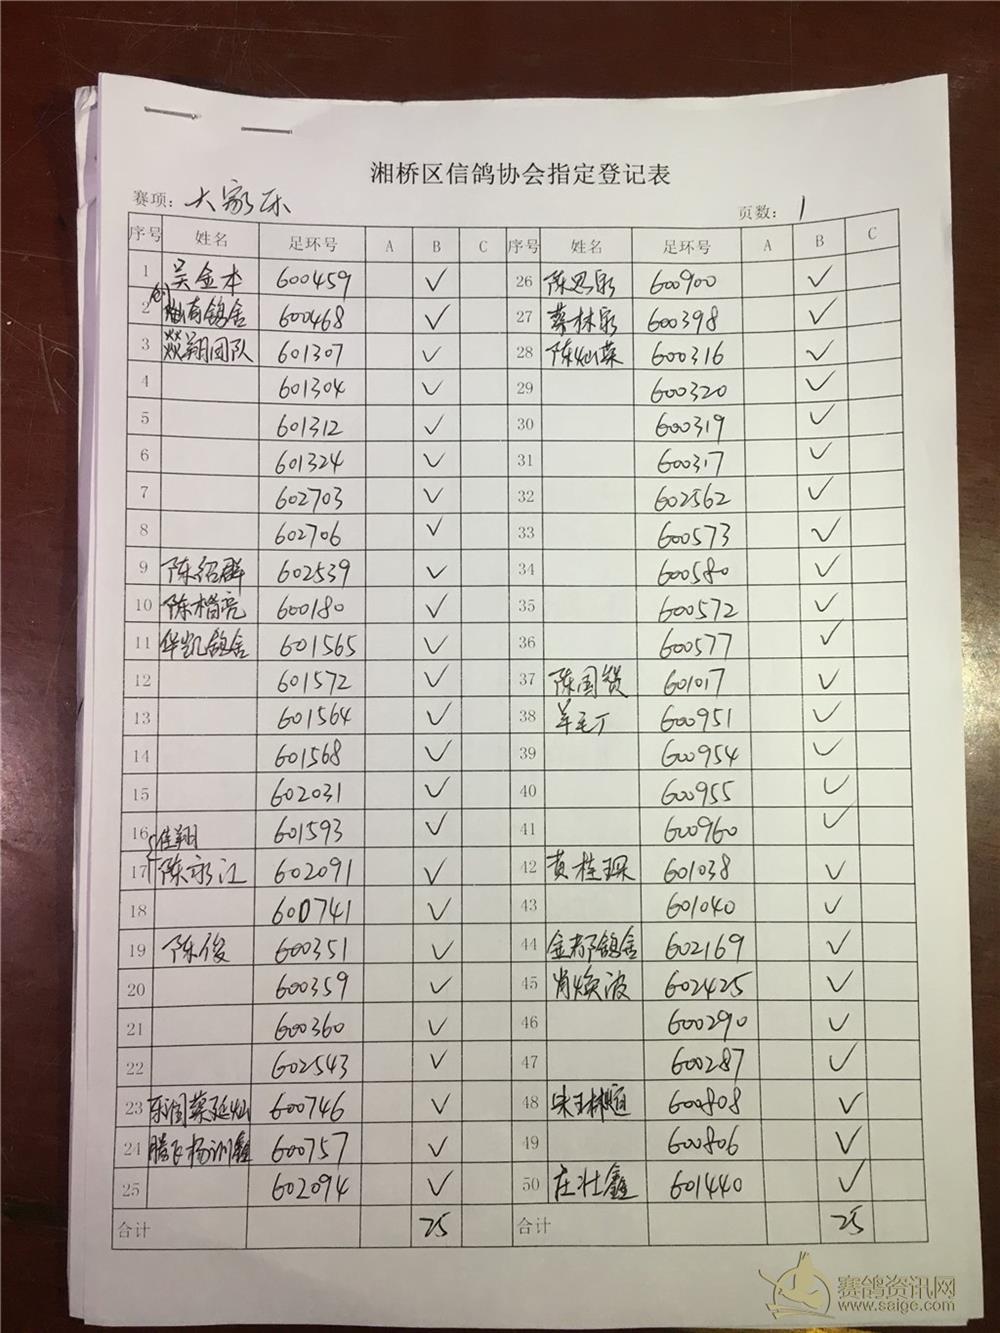 湘桥区信鸽协会指定登记表
赛项: 大家乐 页数: 1
序号 姓名 足环号 A B C 序号 姓名 足环号 A B C
1 吴金本 600459 ✓ 26 陈思泉 600900 ✓
2 南鸽舍 600468 ✓ 27 蔡林泉 600398 ✓
3 焱翔团队 601307 ✓ 28 陈灿荣 600316 ✓
4 601304 ✓ 29 600320 ✓
5 601312 ✓ 30 600319 ✓
6 601324 ✓ 31 600317 ✓
7 602703 ✓ 32 602562 ✓
8 602706 ✓ 33 600573 ✓
9 陈绍群 602539 ✓ 34 600580 ✓
10 陈楷亮 600180 ✓ 35 600572 ✓
11 华凯鸽舍 601565 ✓ 36 600577 ✓
12 601572 ✓ 37 陈国贤 601017 ✓
13 601564 ✓ 38 羊毛丁 600951 ✓
14 601568 ✓ 39 600954 ✓
15 602031 ✓ 40 600955 ✓
16 601593 ✓ 41 600960 ✓
佳翔
17 陈永江 602091 ✓ 42 黄桂琛 601038 ✓
18 600741 ✓ 43 601040 ✓
19 陈俊 600351 ✓ 44 金都鸽舍 602169 ✓
20 600359 ✓ 45 肖焕波 602425 ✓
21 600360 ✓ 46 600290 ✓
22 602543 ✓ 47 600287 ✓
23 蔡延灿 600746 ✓ 48 600808 ✓
24 腾飞杨训鑫 600757 ✓ 49 600806 ✓
25 602094 ✓ 50 庄壮鑫 601440 ✓
合计 25 合计 25
赛鸽资讯网
www.saige.com